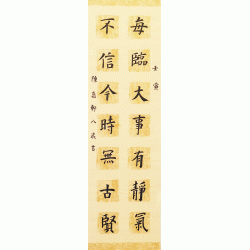 每臨大事有靜氣
不信今時無古賢
八歲書